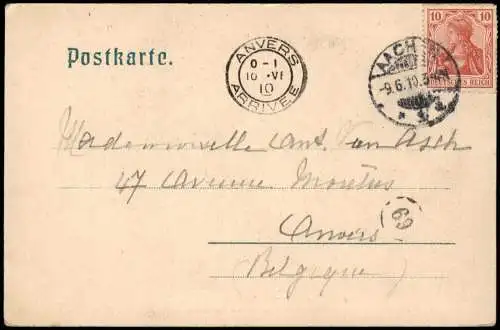 Postkarte.
ANVERS
0-1
10 VI
10
ARRIVÉE
AACHEN
-9.6.10.
10 10
DEUTSCHES REICH
Mademoiselle Ant. Van Asch
47 Avenue Moretus
Anvers
69
Belgique